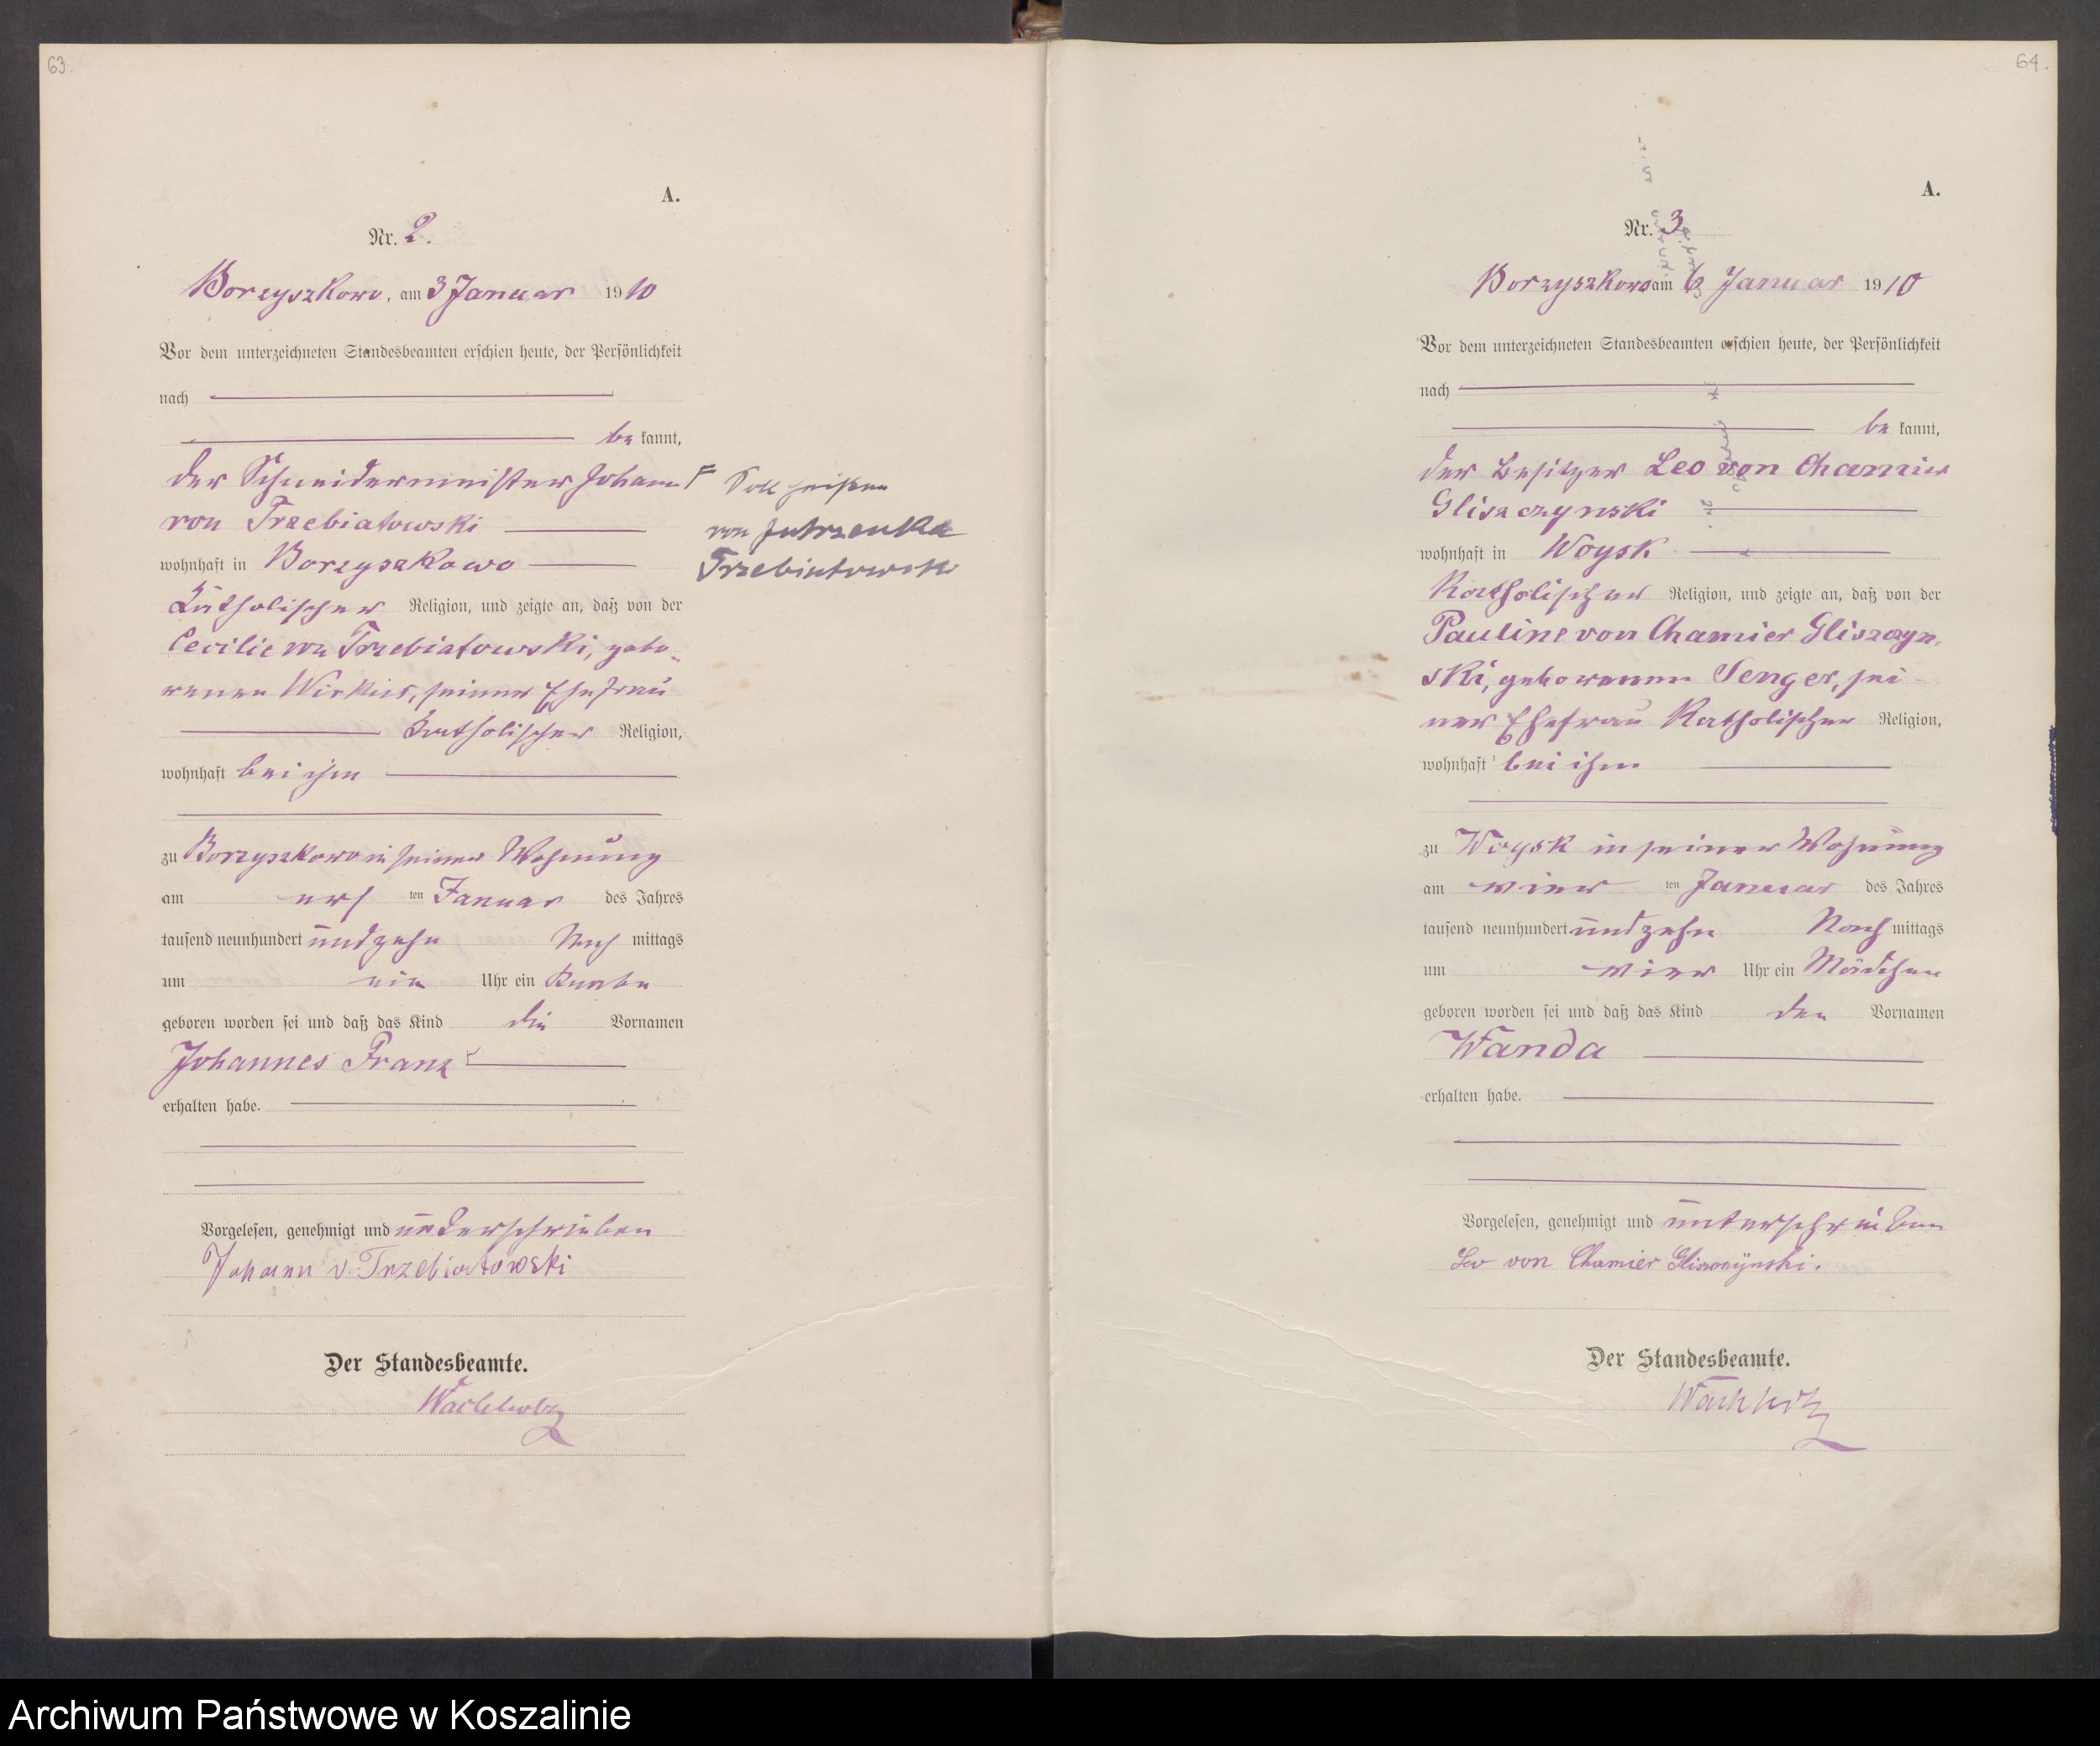 63.
A.
Nr. 2.
Borzyszkowo, am 3 Januar 1910
Vor dem unterzeichneten Standesbeamten erschien heute, der Persönlichkeit
nach
be kannt,
der Schneidermeister Johann
von Trzebiatowski
wohnhaft in Borzyszkowo
katholischer Religion, und zeigte an, daß von der
Cecilie von Trzebiatowski, gebo-
renen Wirkus, seiner Ehefrau
katholischer Religion,
wohnhaft bei ihm
zu Borzyszkowo in seiner Wohnung
am ersten Januar des Jahres
tausend neunhundert undzehn Nachmittags
um ein Uhr ein Knabe
geboren worden sei und daß das Kind die Vornamen
Johannes Franz
erhalten habe.
Vorgelesen, genehmigt und unterschrieben
Johann v. Trzebiatowski
Der Standesbeamte.
Wachholz
F Soll heißen
von Jutrzenka
Trzebiatowski
64.
A.
Nr. 3
Borzyszkowo am 6 Januar 1910
Vor dem unterzeichneten Standesbeamten erschien heute, der Persönlichkeit
nach
be kannt,
der Besitzer Leo von Chamier
Gliszczynski
wohnhaft in Woysk
katholischer Religion, und zeigte an, daß von der
Pauline von Chamier Gliszczyn-
ski, geborenen Senger, sei-
ner Ehefrau katholischer Religion,
wohnhaft bei ihm
zu Woysk in seiner Wohnung
am vierten Januar des Jahres
tausend neunhundert undzehn Nachmittags
um vier Uhr ein Mädchen
geboren worden sei und daß das Kind den Vornamen
Wanda
erhalten habe.
Vorgelesen, genehmigt und unterschrieben
Leo von Chamier Gliszczynski.
Der Standesbeamte.
Wachholz
Archiwum Państwowe w Koszalinie